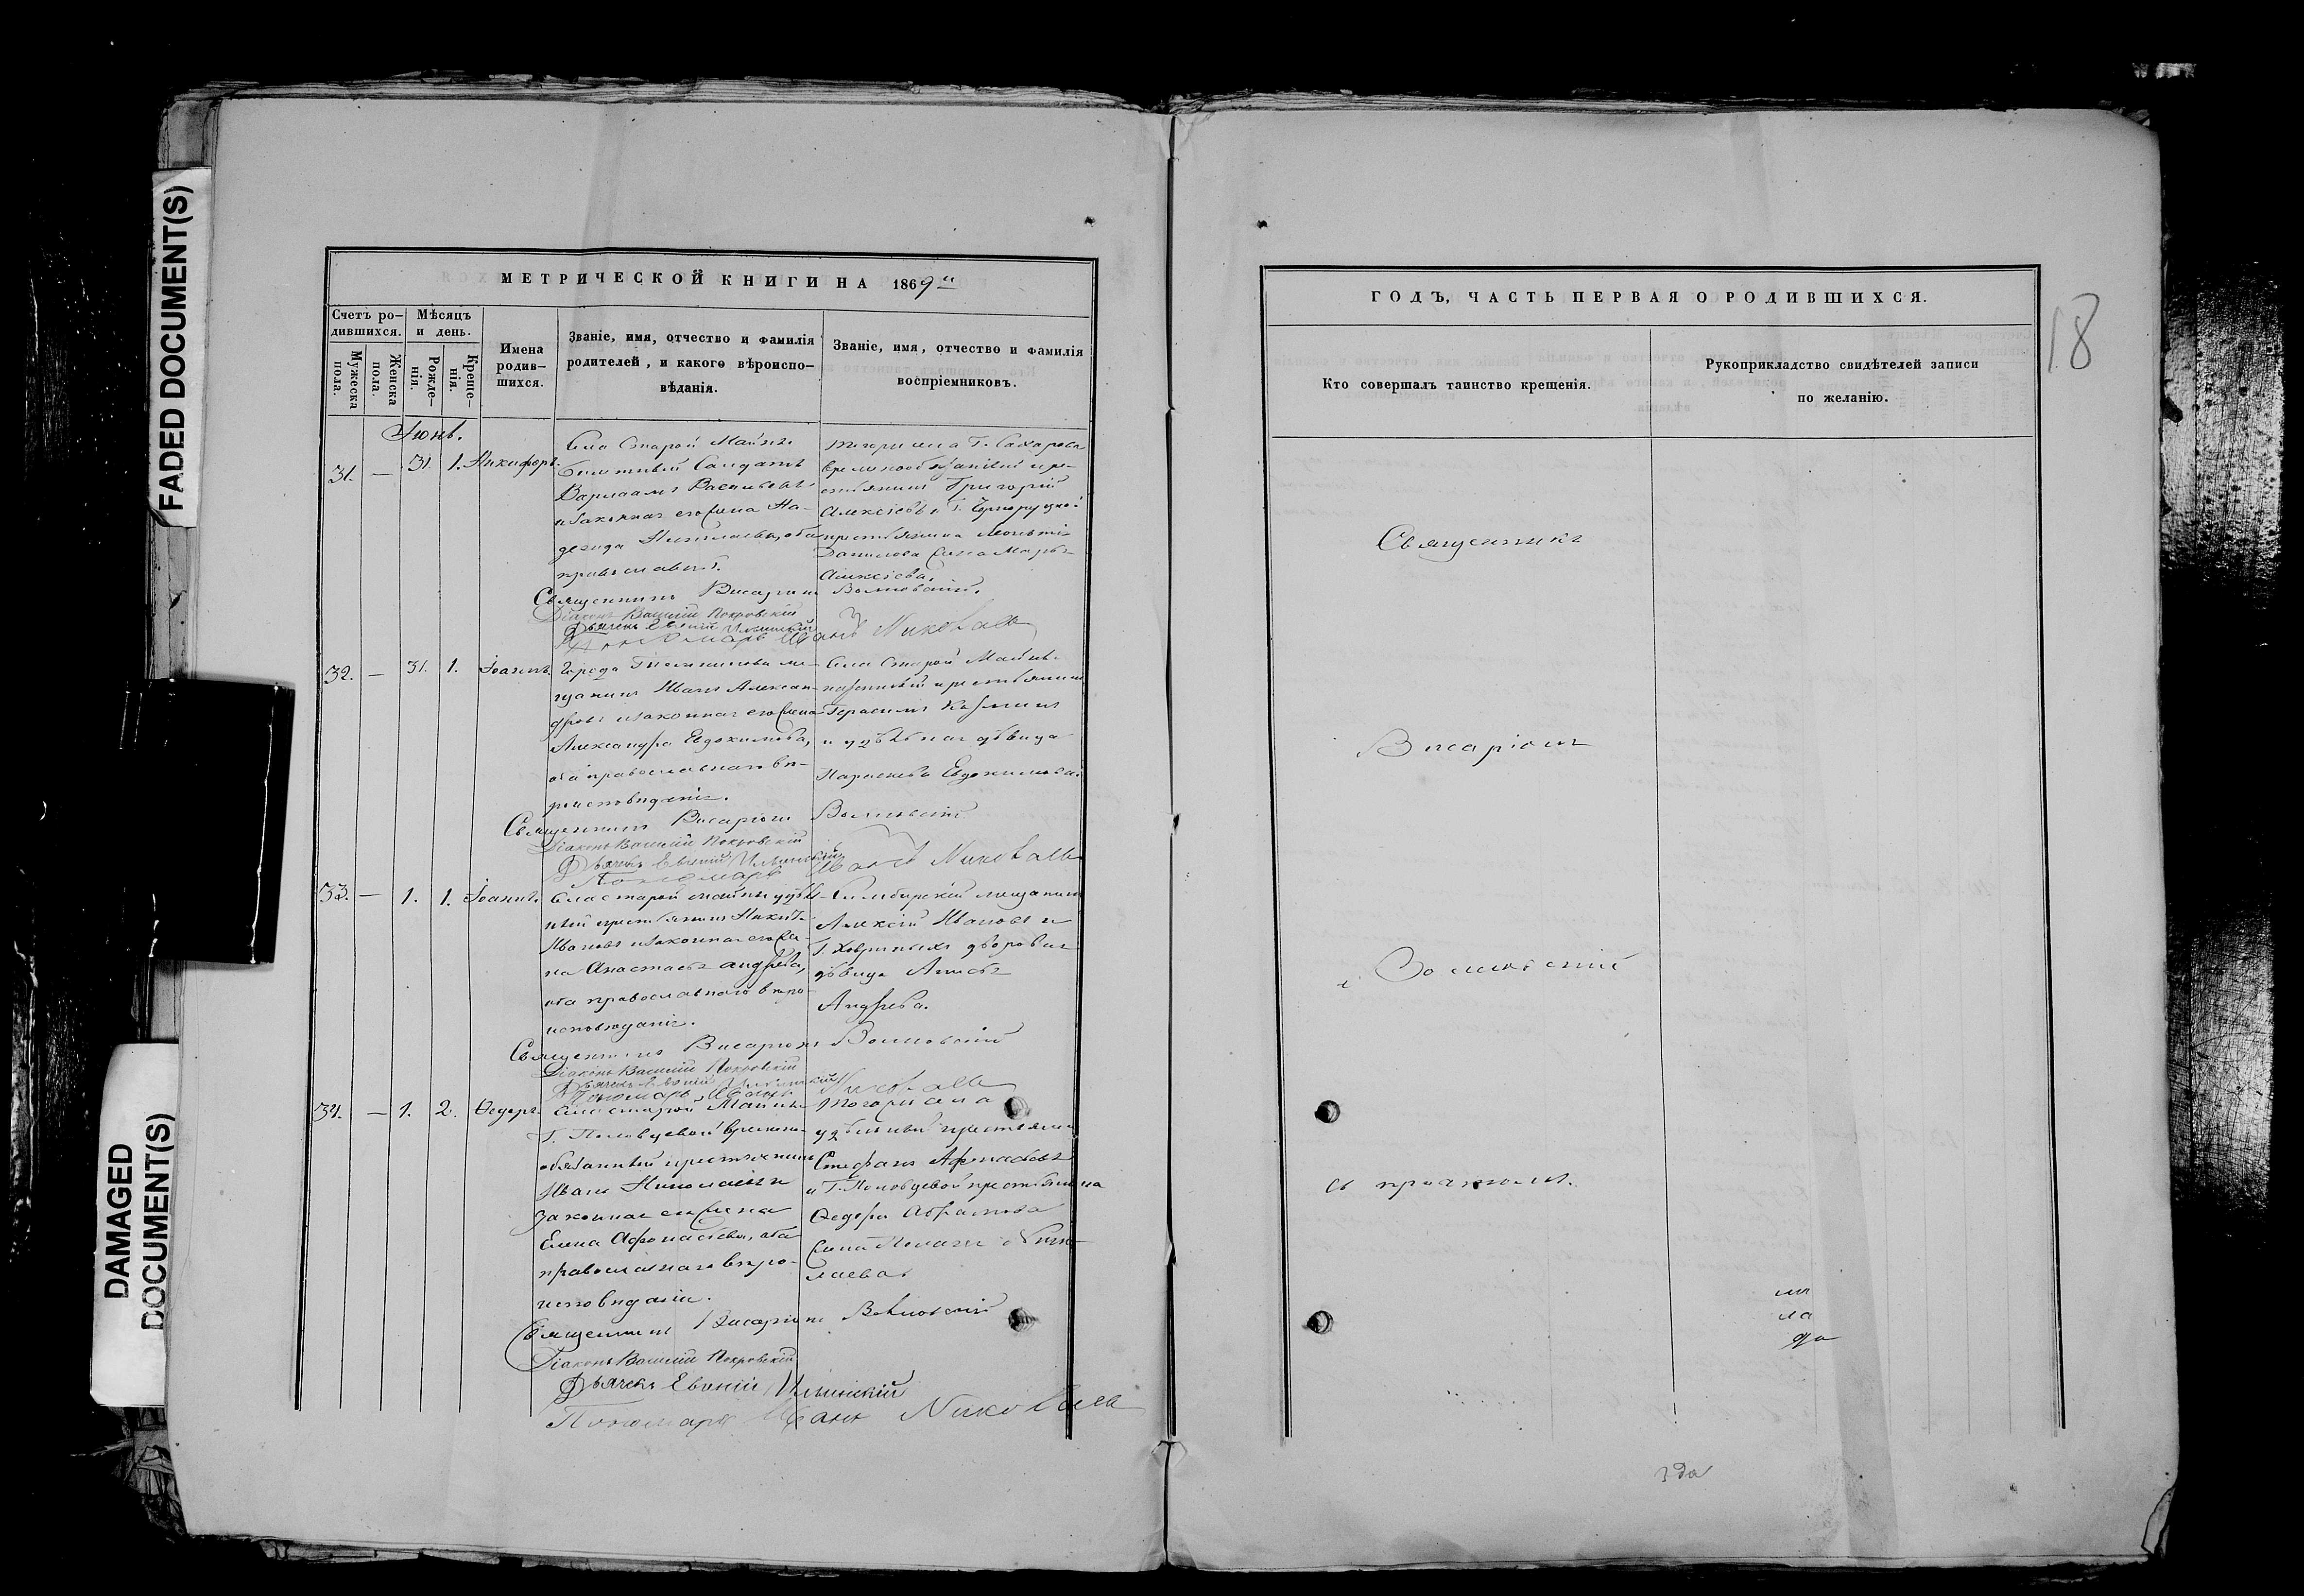 FADED DOCUMENT(S)
DAMAGED
DOCUMENT(S)
МЕТРИЧЕСКОЙ КНИГИ НА 1869й
Счетъ ро-
дившихся.
Мужеска
пола.
Женска
пола.
Мѣсяцъ
и день.
Рожде-
нія.
Креще-
нія.
Имена
родив-
шихся.
Званіе, имя, отчество и фамилія
родителей, и какого вѣроиспо-
вѣданія.
Званіе, имя, отчество и фамилія
воспріемниковъ.
Іюнь.
31. — 31. 1. Никифоръ.
Села Старой Майны
билетный Солдатъ
Варлаамъ Васильевъ
и законная его жена На-
дежда Николаева, оба
православн.
тогоже села Г. Сахарова
временнообязанный кре-
стьянинъ Григорій
Алексѣевъ и Г.
крестьянина Леонтія
Данилова жена Марья
Алексѣева.
Священникъ Висаріонъ Волновскій.
Діаконъ Василій Покровскій
Дьячекъ Евгеній Ильинскій
Пономарь Иванъ Николаевъ
32. — 31. 1. Іоаннъ.
Города мѣ-
щанинъ Иванъ Алексан-
дровъ и законная его жена
Александра Евдокимова,
оба православнаго вѣ-
роисповѣданія.
Села Старой Майны
казенный крестьянинъ
Герасимъ Казминъ
и удѣльная дѣвица
Параскева Евдокимова
Священникъ Висаріонъ Волновскій
Діаконъ Василій Покровскій
Дьячекъ Евгеній Ильинскій
Пономарь Иванъ Николаевъ
33. — 1. 1. Іоаннъ.
Села старой майны удѣль-
ный крестьянинъ Никита
Ивановъ и законная его же-
на Анастасья андреева,
оба православнаго вѣро-
исповѣданія.
Симбирскій мещанинъ
Алексѣй Ивановъ и
Г. дворовая
дѣвица Анисья
Андреева.
Священникъ Висаріонъ Волновскій
Діаконъ Василій Покровскій
Дьячекъ Евгеній Ильинскій
Пономарь Иванъ Николаевъ
34. — 1. 2. Ѳедоръ.
Села старой Майны
Г. Половцевой временно-
обязанный крестьянинъ
Иванъ Николаевъ и
законная его жена
Елена Афонасьева, оба
православнаго вѣро-
исповѣданія.
тогоже села
удѣльный крестьянинъ
Стефанъ Афонасьевъ
и Г. Половцевой крестьянина
Ѳедора Абрамова
жена Пелагія Нико-
лаева
Священникъ Висаріонъ Волновскій
Діаконъ Василій Покровскій
Дьячекъ Евгеній Ильинскій
Пономарь Иванъ Николаевъ
ГОДЪ, ЧАСТЬ ПЕРВАЯ О РОДИВШИХСЯ.
18
Кто совершалъ таинство крещенія.
Рукоприкладство свидѣтелей записи
по желанію.
Священникъ
Висаріонъ
Волновскій
съ причтомъ.
ла
да